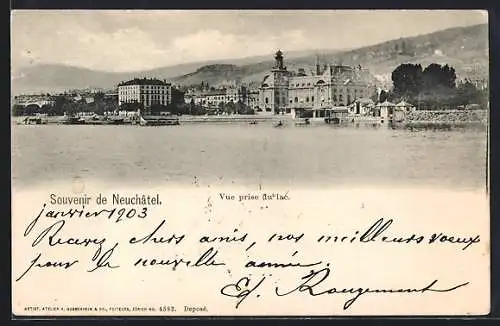 Souvenir de Neuchâtel. Vue prise du lac.
janvier 1903
Recevez, chers amis, nos meilleurs vœux
pour la nouvelle année.
Ed. Rougement
ARTIST. ATELIER H. GUGGENHEIM & CO., EDITEURS, ZÜRICH No. 4582. Deposé.